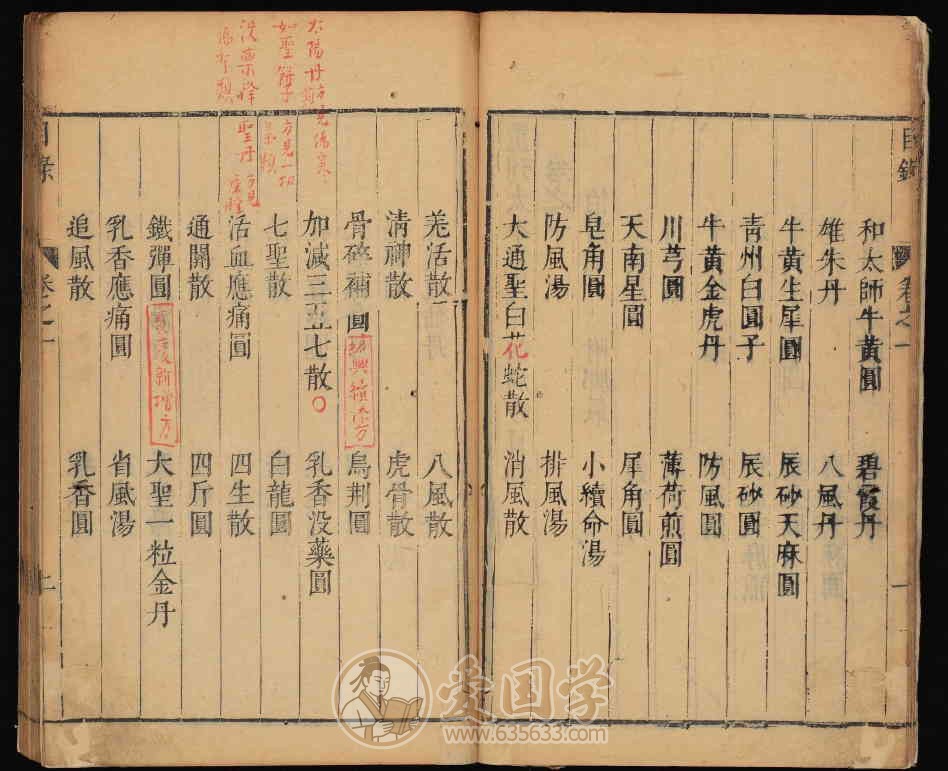 目錄 卷之一 一
和太師牛黃圓 碧霞丹
雄朱丹 八風丹
牛黃生犀圓 辰砂天麻圓
青州白圓子 辰砂圓
牛黃金虎丹 防風圓
川芎圓 薄荷煎圓
天南星圓 犀角圓
皂角圓 小續命湯
防風湯 排風湯
大通聖白花蛇散 消風散
花
太陽丹
方見傷寒
如聖餅子
方見一切
氣類
沒藥降聖丹
方見
羌活散 八風散
清神散 虎骨散
骨碎補圓 烏荆圓
紹興續添方
加減三五七散 乳香没藥圓
七聖散 白龍圓
活血應痛圓 四生散
通關散 四斤圓
鐵彈圓 大聖一粒金丹
寶慶新增方
乳香應痛圓 省風湯
追風散 乳香圓
目錄 卷之一
爱国学
www.635633.com